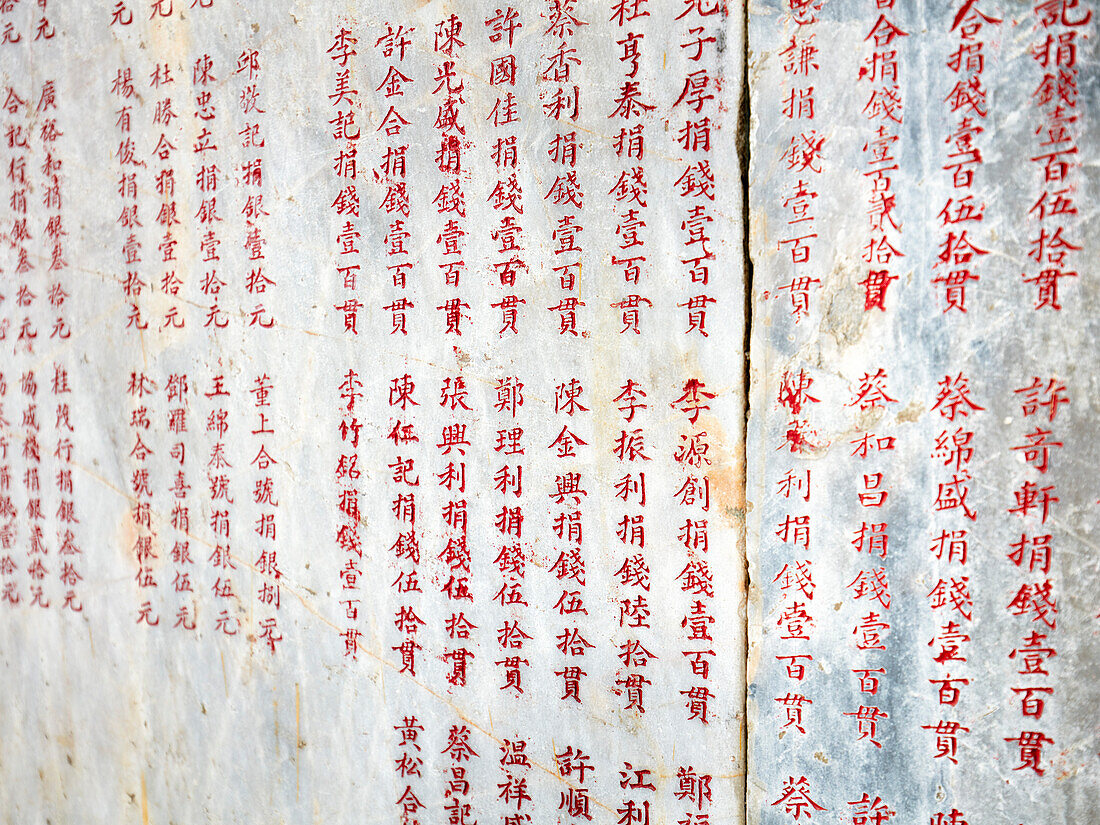 記捐錢壹百伍拾貫
許奇軒捐錢壹百貫
合捐錢壹百伍拾貫
蔡綿盛捐錢壹百貫
陳
合捐錢壹百貳拾貫
蔡和昌捐錢壹百貫
許
謙捐錢壹百貫
陳 利捐錢壹百貫
蔡
子厚捐錢壹百貫
李源創捐錢壹百貫
鄭
杜亨泰捐錢壹百貫
李振利捐錢陸拾貫
江利
蔡香利捐錢壹百貫
陳金興捐錢伍拾貫
許順
許國佳捐錢壹百貫
鄭理利捐錢伍拾貫
溫祥
陳光盛捐錢壹百貫
張興利捐錢伍拾貫
蔡昌記
許金合捐錢壹百貫
陳伍記捐錢伍拾貫
黃松合
李美記捐錢壹百貫
李竹銘捐錢壹百貫
邱敬記捐銀壹拾元
董上合號捐銀捌元
陳忠立捐銀壹拾元
王綿泰號捐銀伍元
杜勝合捐銀壹拾元
鄧羅司喜捐銀伍元
元
楊有俊捐銀壹拾元
林瑞合號捐銀伍元
元
廣裕和捐銀叁拾元
桂茂行捐銀叁拾元
拾元
合記行捐銀叁拾元
協成棧捐銀貳拾元
行捐銀壹拾元